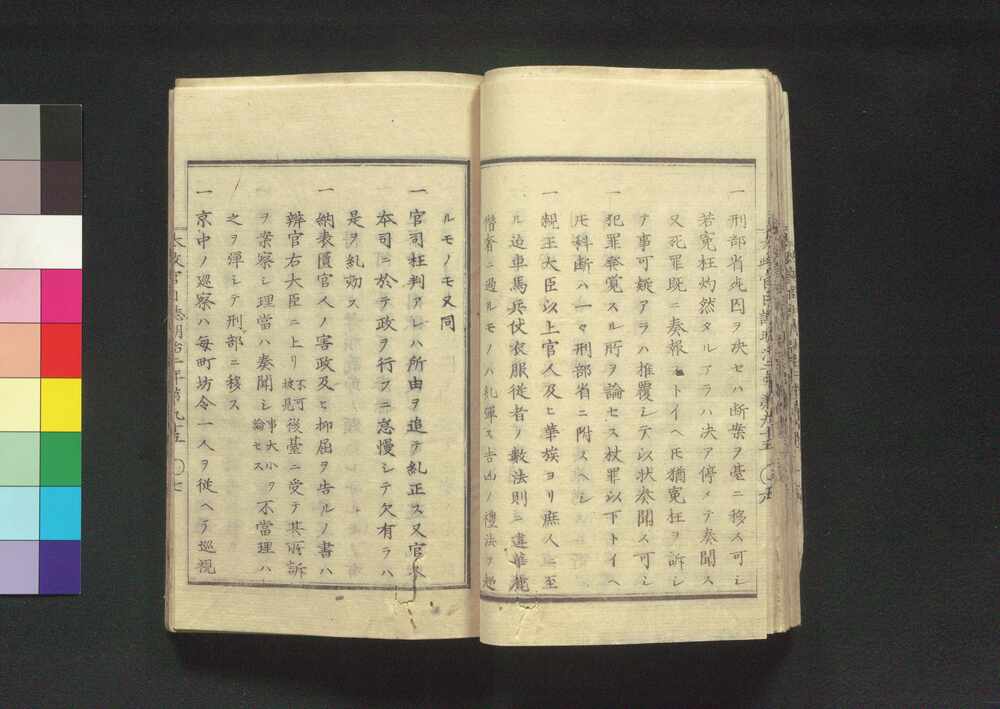 一刑部省死囚ヲ决セハ断案ヲ臺ニ移ス可シ
若寃枉灼然タルアラハ决ヲ停メテ奏聞ス
又死罪既ニ奏報ストイヘ𪜈猶寃枉ヲ訴シ
テ事可疑アラハ推覆シテ以状奏聞ス可シ
一犯罪發覚スル所ヲ論セス杖罪以下トイヘ
𪜈科断ハ一々刑部省ニ附スヘシ
一親王大臣以上官人及ヒ華族ヨリ庶人ニ至
ル迠車馬兵仗衣服従者ノ数法則ニ違華麗
僭奢ニ過ルモノハ糺弾ス吉凶ノ禮法ヲ越
ルモノモ又同
一官司枉判アレハ所由ヲ追テ糺正ス又官人
本司ニ於テ政ヲ行フニ怠慢シテ欠有ラハ
是ヲ糺劾ス
一納表儥官人ノ害政及ヒ抑屈ヲ告ルノ書ハ
辨官右大臣ニ上リ不可披見後臺ニ受テ其所訴
ヲ案察シ理當ハ奏聞シ事大小ヲ論セス不當理ハ
之ヲ弾シテ刑部ニ移ス
一京中ノ巡察ハ毎町坊令一人ヲ従ヘテ巡視
太政官日誌明治二年第九十五
七